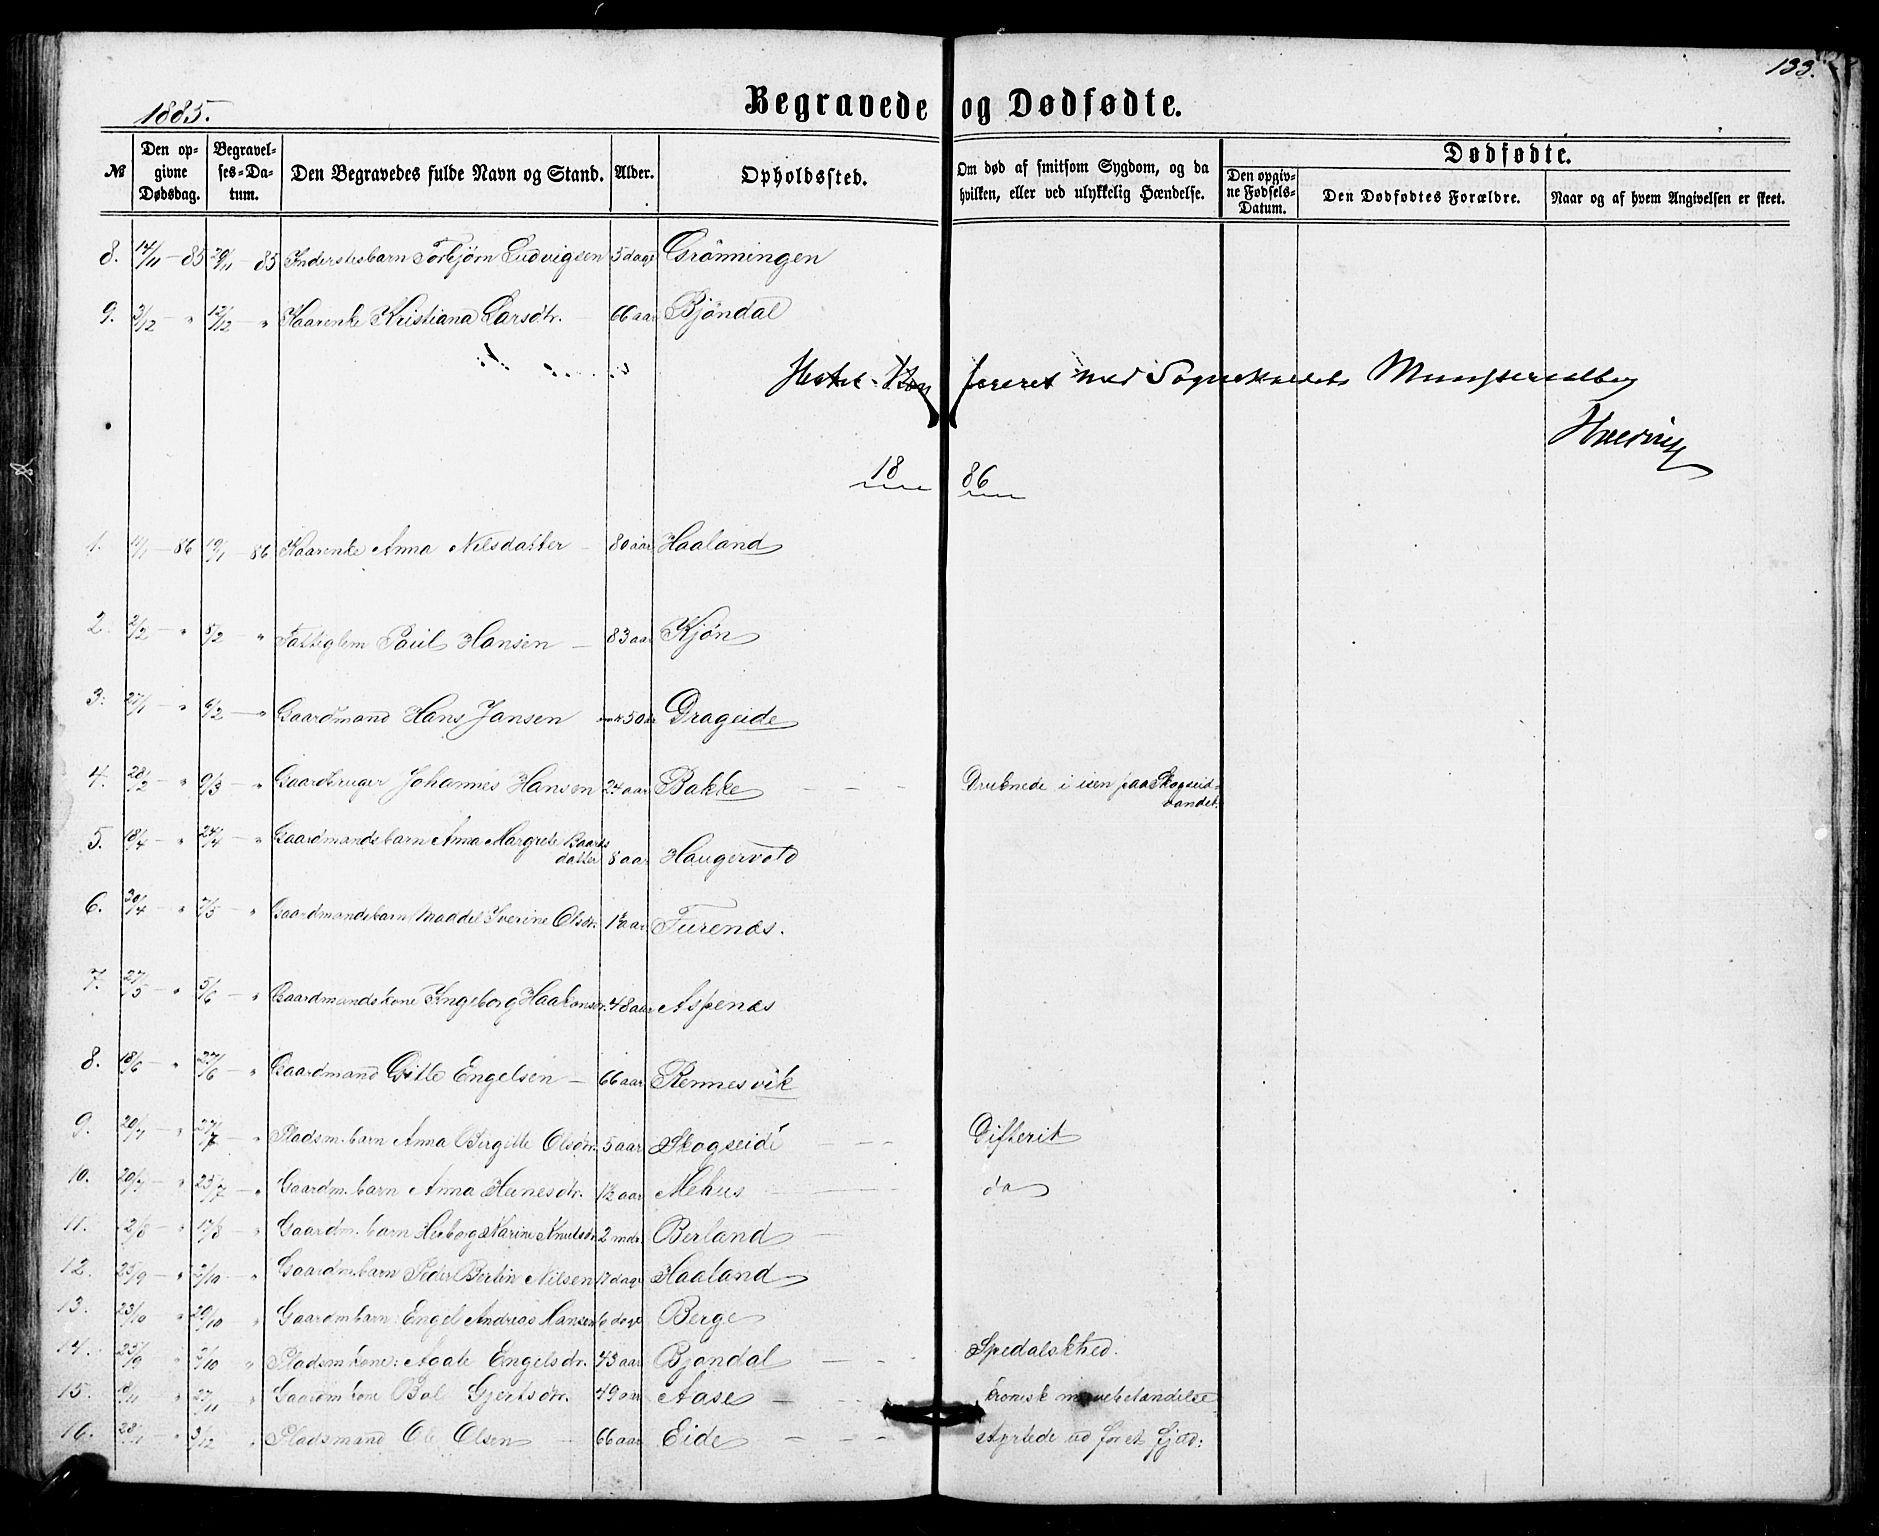 133.
1885.
Begravede og Dødfødte.
№ | Den opgivne Dødsdag. | Begravelses-Datum. | Den Begravedes fulde Navn og Stand. | Alder. | Opholdssted. | Om død af smitsom Sygdom, og da hvilken, eller ved ulykkelig Hændelse. | Dødfødte. | Den opgivne Fødsels-Datum. | Den Dødfødtes Forældre. | Naar og af hvem Angivelsen er skeet.
8. 14/11 - 85 20/11 - 85 Inderstesbarn Torbjørn Ludvigsen 5 dage Grönningen
9. 3/12 - " 12/12 " Kaarenke Kristiana Larsdtr. 66 aar Bjöndal
med Sognekaldets
18 86
1. 11/1 - 86 19/1 - 86 Kaarenke Anna Nilsdatter - 80 aar Haaland
2. 2/2 - " 8/2 - " Fattiglem Paul Hansen - 83 aar Kjön
3. 27/1 - " 9/2 - " Gaardmand Hans Jansen 50 Drageide
4. 28/2 - " 9/3 - " Gaardbruger Johannes Hansen 24 aar Bakke - - - Druknede i isen paa Skogseid-
vandet.
5. 18/4 - " 24/4 - " Gaardmandsbarn Anna Margrete Baards
datter 8 aar Haugervold
6. 30/4 - " 7/5 - " Gaardmandsbarn Maadel Iverine Olsdtr. 1½ aar Furenæs.
7. 27/5 - " 5/6 - " Gaardmandskone Ingeborg Haakonsdr. 48 aar Aspenæs
8. 18/6 - " 27/6 - " Gaardmand Gitle Engelsen - 66 aar Rennesvik
9. 20/7 - " 27/7 - " Pladsm.barn Anna Bergitte Olsdtr. 5 aar Skogseide - - - Difterit
10. 20/7 - " 25/7 - " Gaardm.barn Anna Heinesdtr. 1½ aar Mehus - - do
11. 2/8 - " 12/8 - " Gaardm.barn Herborg Karine Knutsdr. 2 mdr. Berland -
12. 25/9 - " 3/10 - " Gaardm.barn Peder Bertin Nilsen 17 dage Haaland
13. 23/10 " 29/10 " Gaardmbarn: Engel Andrias Hansen 6 dage Berge
14. 25/9 " 2/10 " Pladsm kone: Agate Engelsdr. 43 aar Bjöndal - - - Spedalskhed.
15. 18/11 " 27/11 " Gaardm kone Bol Gjertsdtr. 49 aar Aase - - - kronisk mavebetændelse
16. 28/11 " 3/12 " Pladsmand Ole Olsen 66 aar Eide - - - styrtede ud for et fjæld: